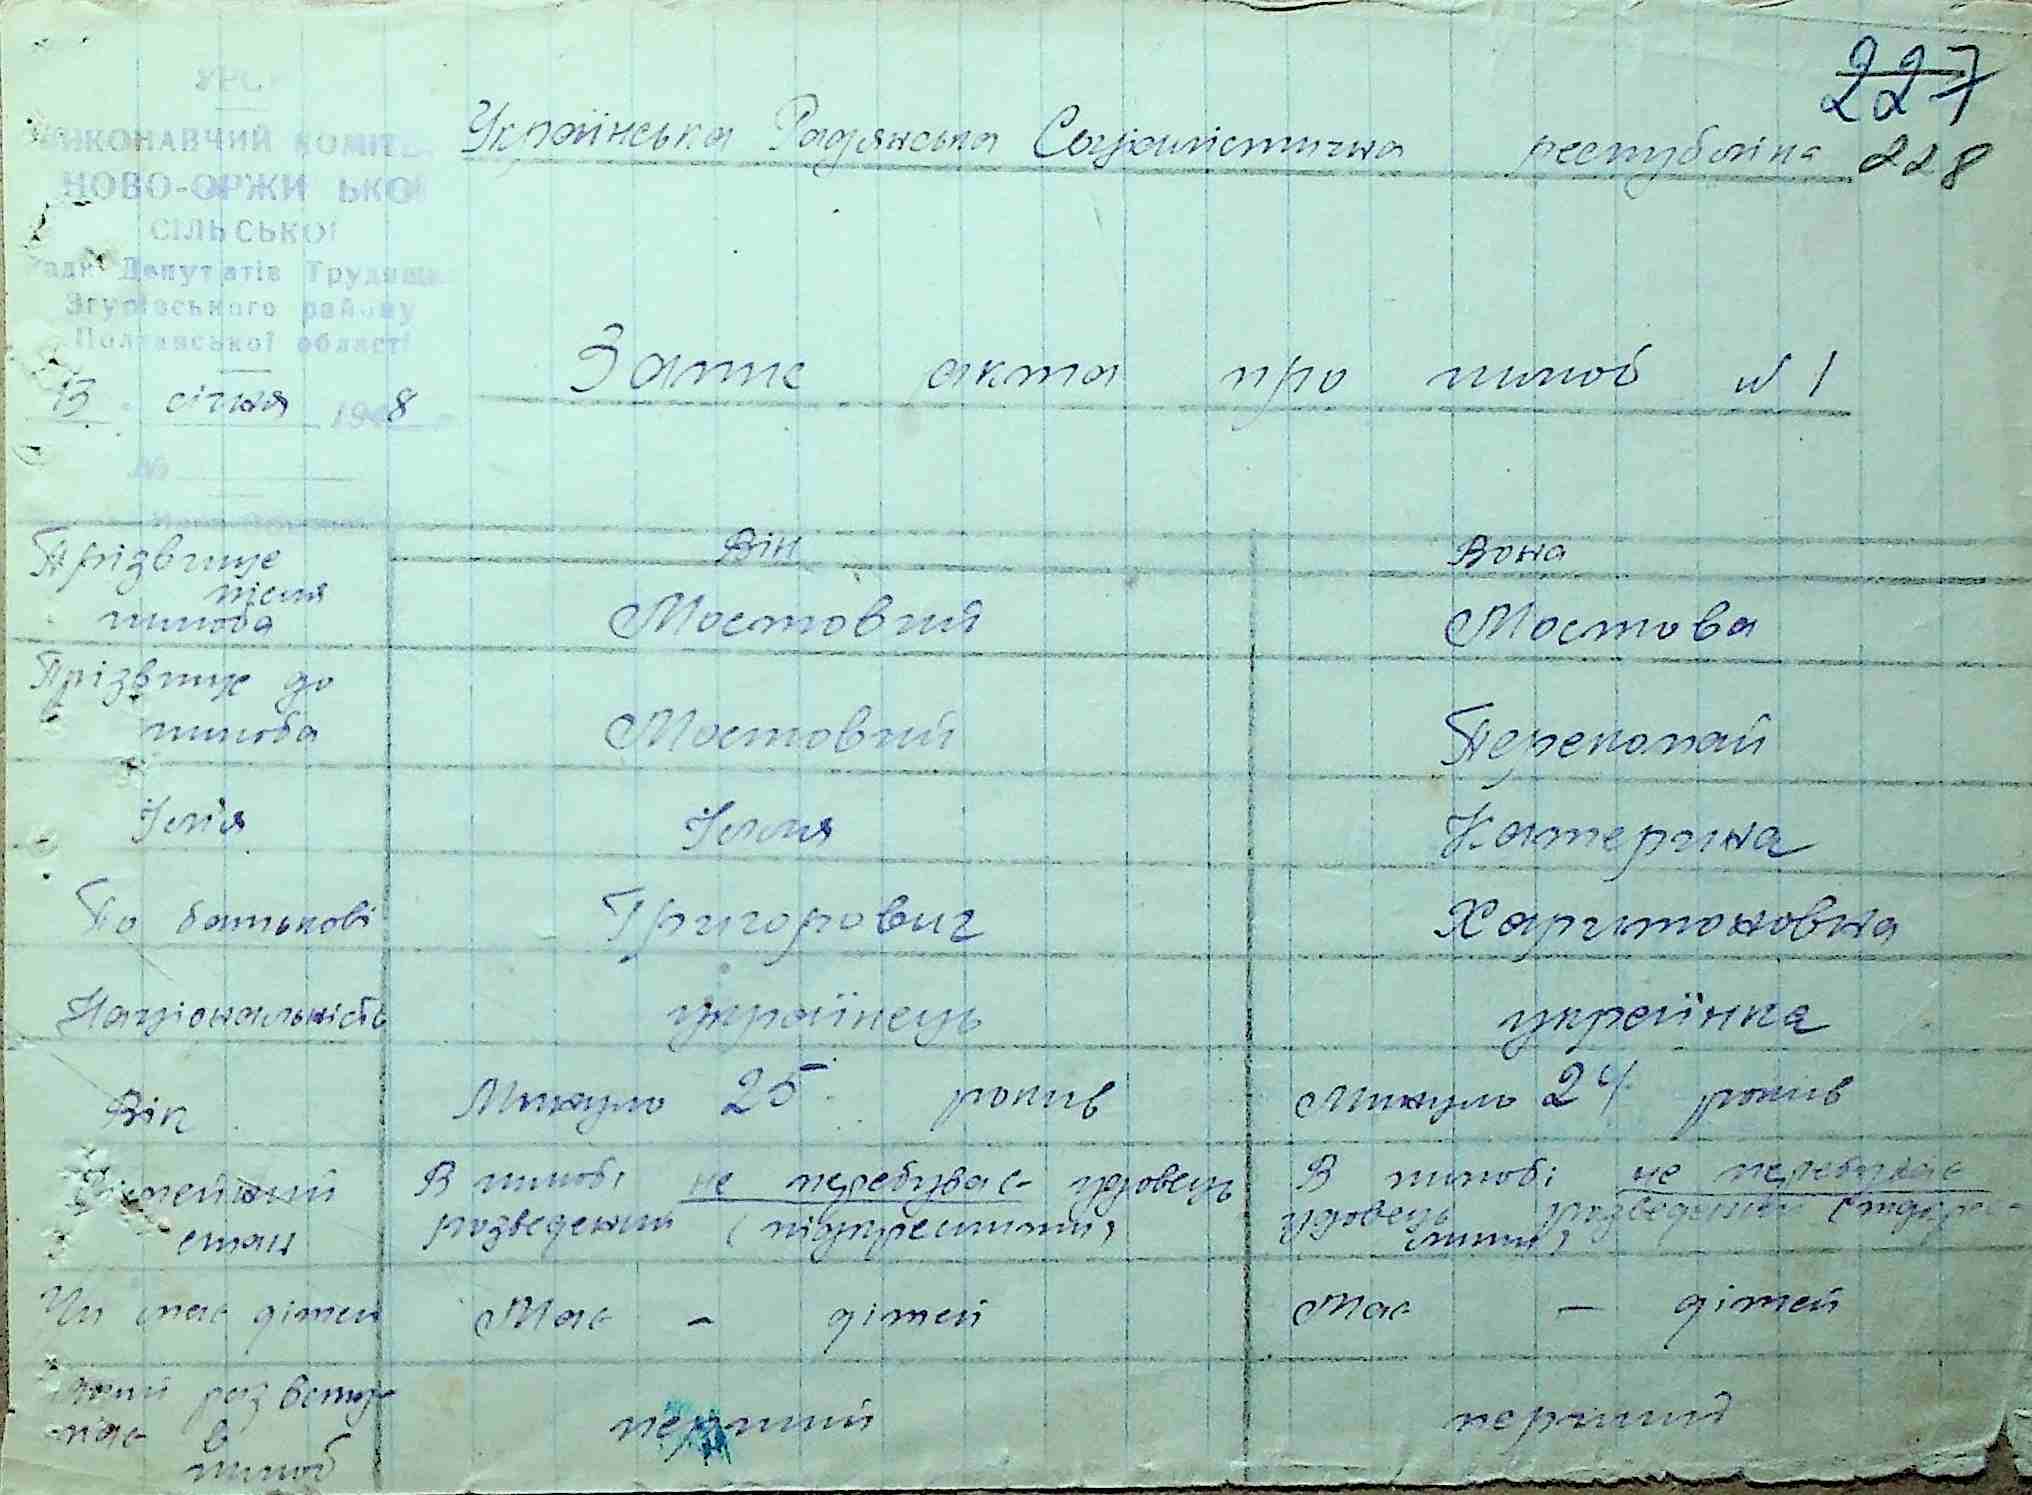 227
УРС
ВИКОНАВЧИЙ КОМІТЕ
Українська Радянська Соціалістична республіка 228
НОВО-ОРЖИ ЬКОЇ
СІЛЬСЬКОЇ
Ради Депутатів Трудящих
Згурівського району
Полтавської області
13 січня 1948
Запис акта про шлюб № 1
№
Прізвище після шлюба
Він
Вона
Мостовий
Мостова
Прізвище до шлюба
Мостовий
Перекопай
Ім'я
Ілля
Катерина
По батькові
Григорович
Харитоновна
Національність
українець
українка
Вік
Минуло 25 років
Минуло 24 років
Сімейний стан
В шлюбі не перебуває удовець
розведений (підкреслити)
В шлюбі не перебуває
удовець розведений (підкрес-
лити)
Чи має дітей
Має - дітей
Має - дітей
раз всту-
пає в
шлюб
перший
перший